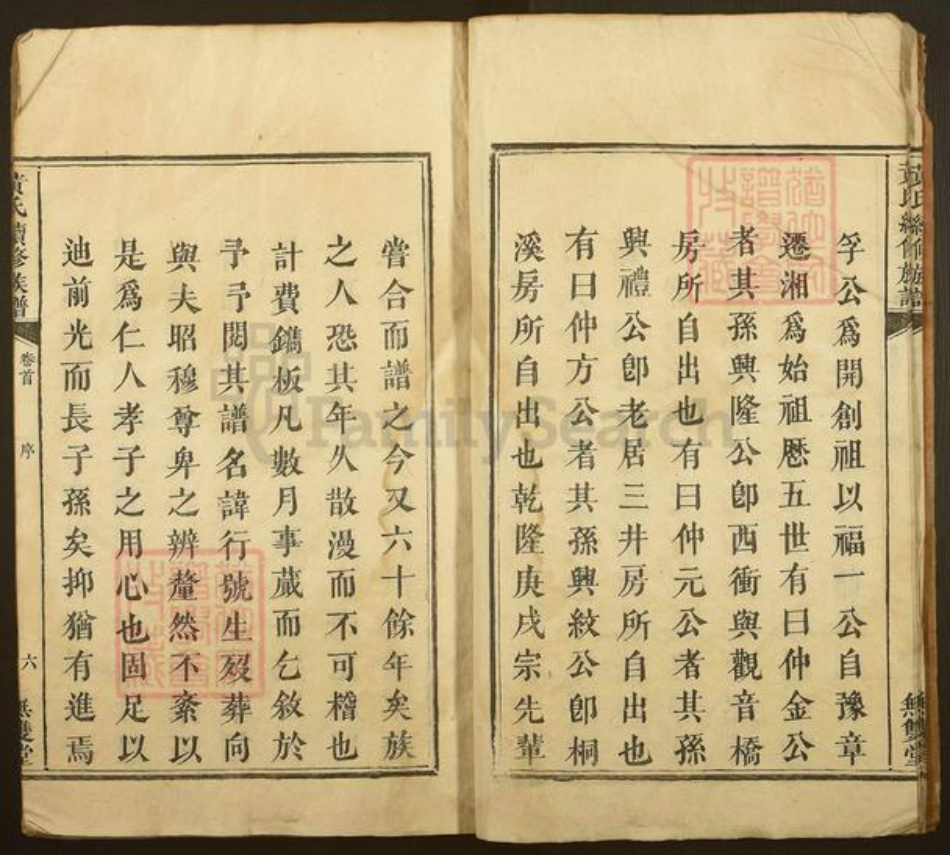 黃氏續修族譜
無雙堂
孚公爲開創祖以福一公自豫章
遷湘爲始祖歷五世有曰仲金公
者其孫興隆公卽西衝與觀音橋
房所自出也有曰仲元公者其孫
興禮公卽老居三井房所自出也
有曰仲方公者其孫興紋公卽桐
溪房所自出也乾隆庚戌宗先輩
嘗合而譜之今又六十餘年矣族
之人恐其年久散漫而不可稽也
計費鐫板凡數月事蕆而乞敘於
予予閱其譜名諱行號生歿葬向
與夫昭穆尊卑之辨釐然不紊以
是爲仁人孝子之用心也固足以
迪前光而長子孫矣抑猶有進焉
黃氏續修族譜
卷首
序
六
無雙堂
FamilySearch